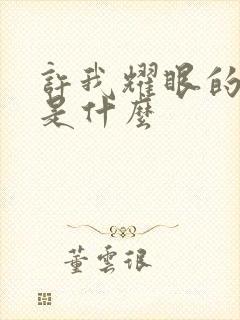 許我耀眼的
是什麼
董雲很